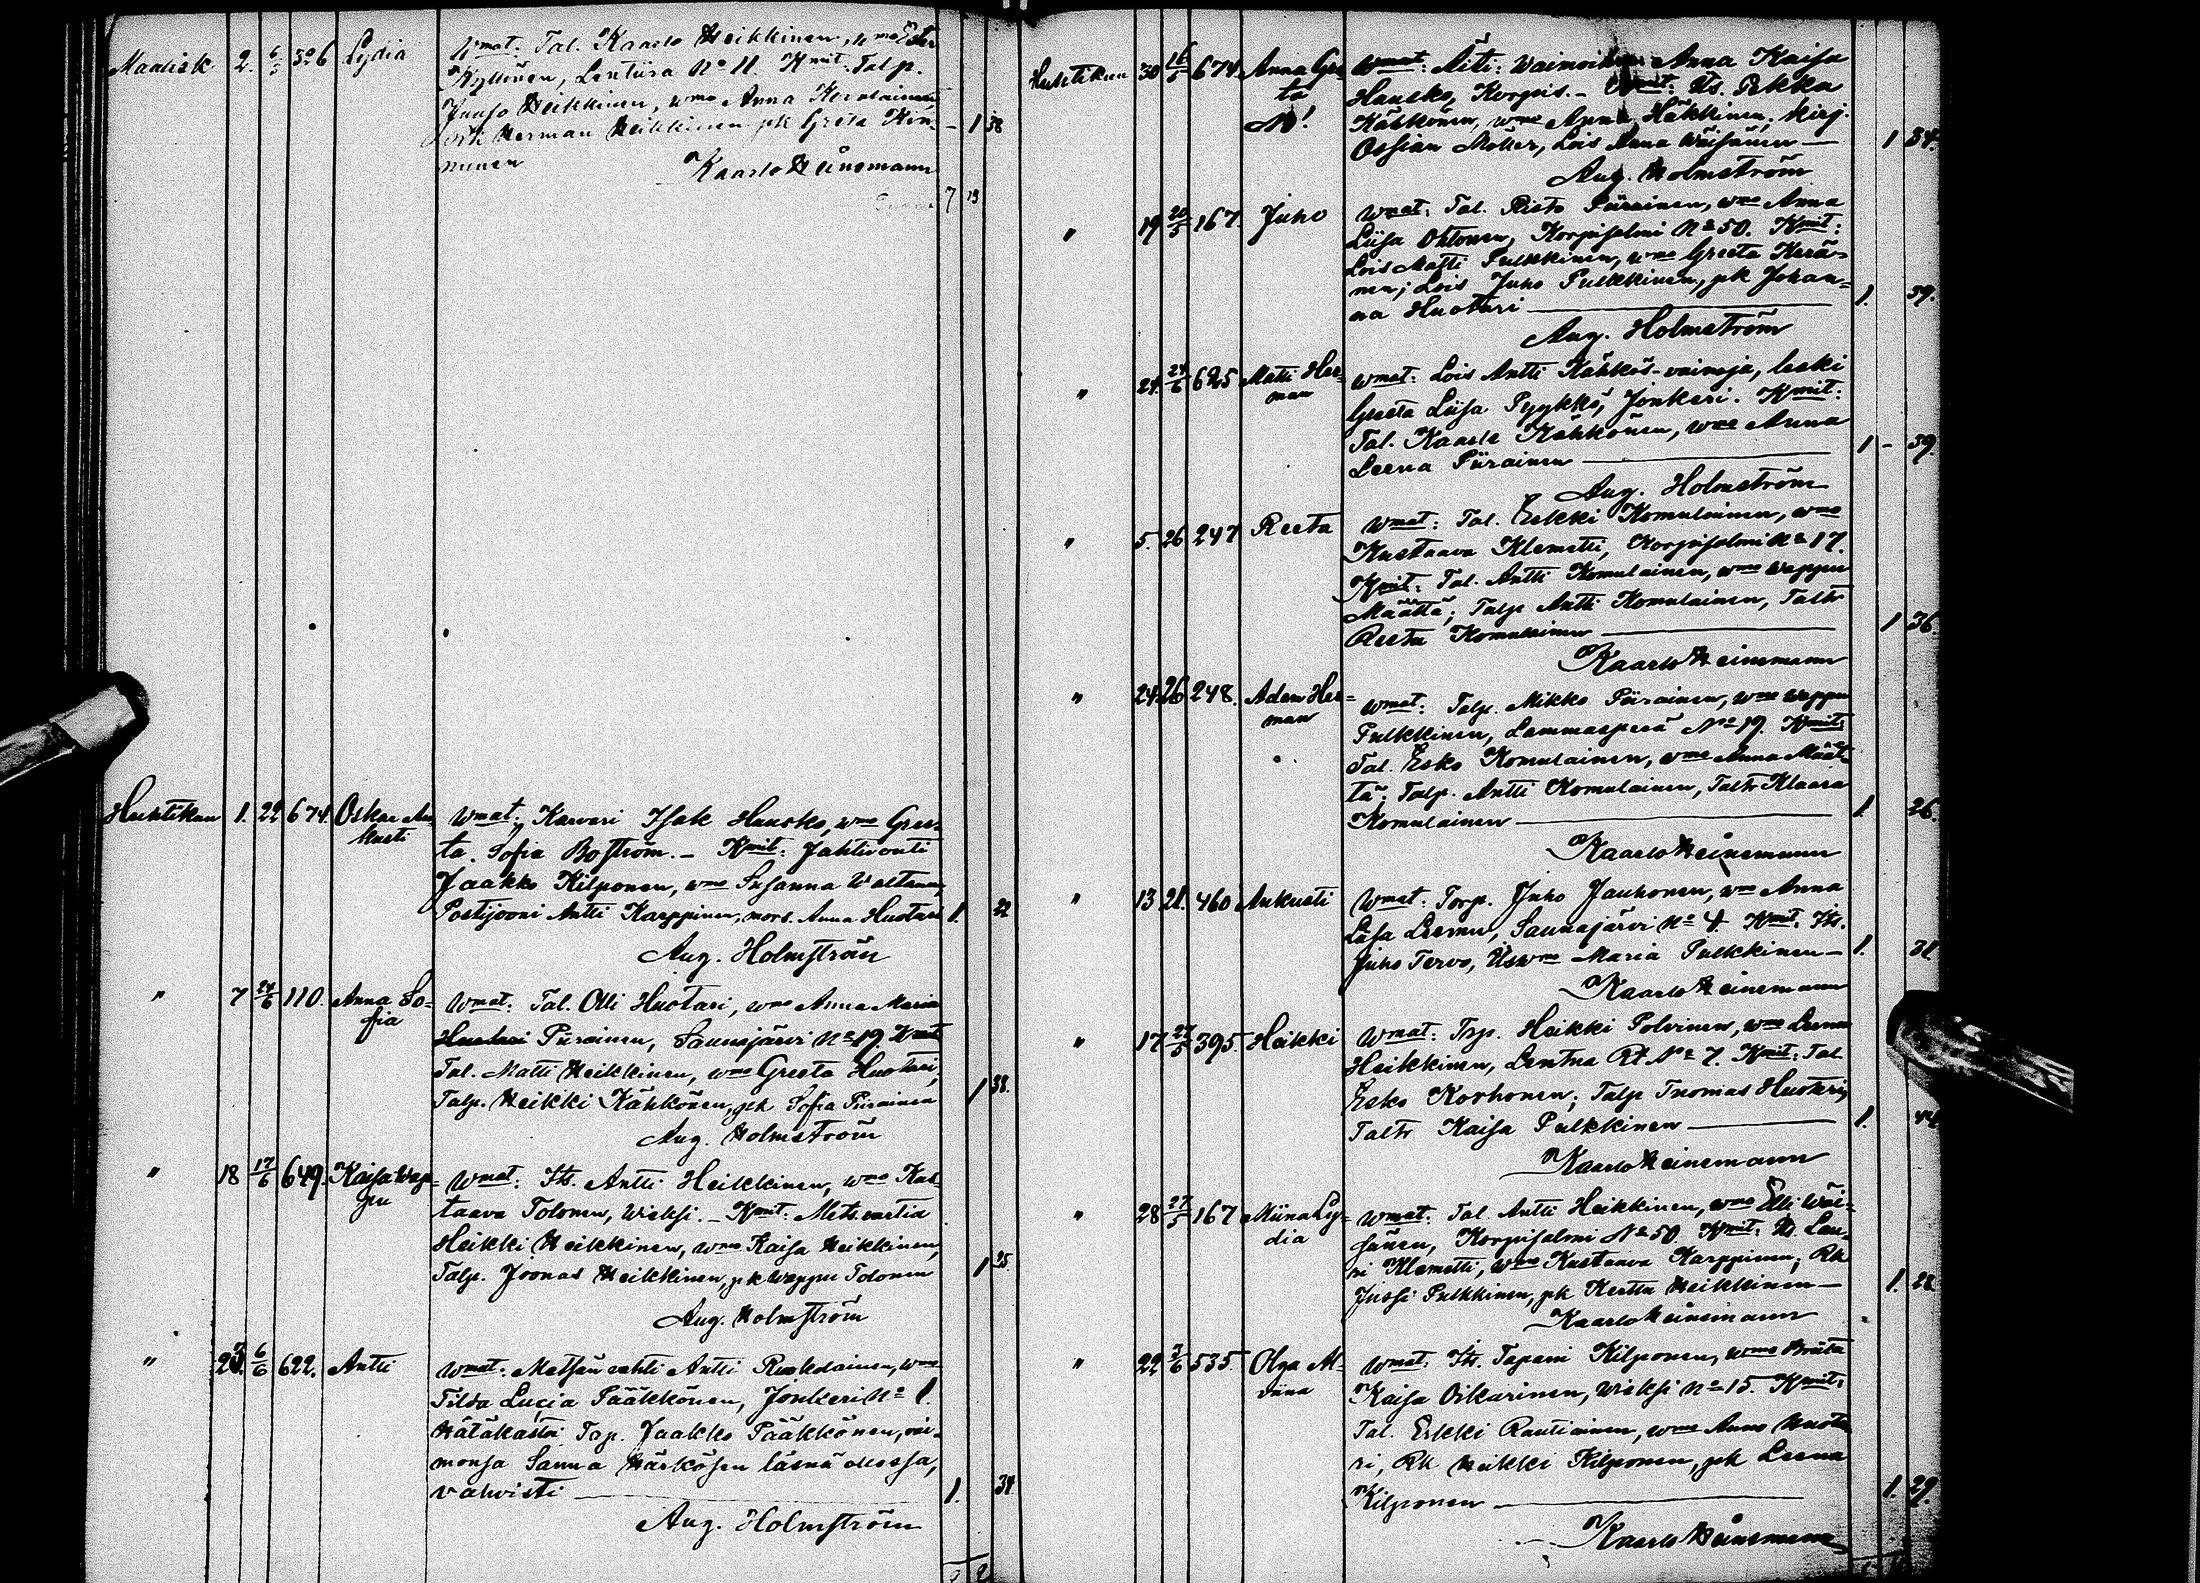 Maalisk 2. 6/3 306 Lydia Wmat: Tal. Kaarlo Heikkinen, wmo Ester
Kyllönen, Lentiira No 11. Kmit. Talp.
Juuso Heikkinen, wmo Anna Komulainen,
Herman Heikkinen pk Greta Kin- - 1 38
nunen
Kaarlo Heinemann
7 19
Huhtikuu 1. 22 674. Oskar Au-
kusti
Wmat: Karvari Isak Hausko, wmo Gree-
ta Sofia Boström. - Kmit: Jahtivouti
Jaakko Kilponen, wmo Susanna Waltanen,
Postijooni Antti Karppinen, mors. Anna Huotari 1. 22
Aug. Holmström
" 7 24/6 110. Anna So-
fia
Wmat: Tal. Olli Huotari, wmo Anna Maria
Huotari Piirainen, Saunajärvi No 19. Kmit
Tal. Matti Heikkinen, wmo Greeta Huotari,
Talp. Heikki Kähkönen, pk Sofia Piirainen 1 38.
Aug. Holmström
" 18 17/6 649. Kaisa Wap-
pu
Wmat: Its. Antti Heikkinen, wmo Kus-
taava Tolonen, Wieksi. - Kmit: Mets.vartia
Heikki Heikkinen, wmo Kaisa Heikkinen,
Talp. Joonas Heikkinen, pk Wappu Tolonen 1 25.
Aug. Holmström
" 23. 6/6 622. Antti Wmat: Metsän vahti Antti Ruokolainen, wmo
Tilda Lucia Pääkkönen, Jonkeri No 1.
Hätäkastoi Tap. Jaakko Pääkkönen, vai-
monsa Sanna Härkösen läsnä olessa,
vahvisti 1. 31
Aug. Holmström
Huhtikuu 30 16/5 674 Anna Gre-
ta
Ä!
Wmat: Äiti: Waimoihm. Anna Kaisa
Hausko, Korpis. - Kmit: Its. Pekka
Kähkönen, wmo Anna Häkkinen; kirj.
Ossian Möller, Lois Anna Wäisänen 1 34.
Aug. Holmström
" 19 20/5 167. Juho Wmat: Tal. Risto Piirainen, wmo Anna
Liisa Ohtonen, Korpisalmi No 50. Kmit:
Lois Matti Pulkkinen, wmo Greeta Kerä-
nen; Lois Juho Pulkkinen, pk Johan-
na Huotari 1. 39.
Aug. Holmström
" 24. 24/6 625 Matti Her-
man
Wmat: Lois Antti Kähkös-vainaja, leski
Greeta Liisa Pyykkö, Jonkeri. Kmit:
Tal. Kaarle Kähkönen, wmo Anna
Leena Piirainen 1 - 39.
Aug. Holmström
" 5. 26 247 Reeta Wmat: Tal. Erkki Komulainen, wmo
Kustaava Klemetti, Korpisalmi No 17.
Kmit: Tal. Antti Komulainen, wmo Wappu
Määttä; Talp Antti Komulainen, Taltr
Reeta Komulainen 1 36.
Kaarlo Heinemann
" 24. 26 248. Adam Her-
man
Wmat: Talp. Mikko Piirainen, wmo Wappu
Pulkkinen, Lammasperä No 19. Kmit:
Tal. Esko Komulainen, wmo Anna Määt-
tä; Talp. Antti Komulainen, Taltr Klaara
Komulainen 1. 26.
Kaarlo Heinemann
" 13 21. 460 Aukusti Wmat: Torp. Juho Jauhonen, wmo Anna
Liisa Leemu, Saunajärvi No 4. Kmit. Its.
Juho Tervo, Itswmo Maria Pulkkinen 1. 31
Kaarlo Heinemann
" 17 27/5 395. Heikki Wmat: Trp. Heikki Polvinen, wmo Leena
Heikkinen, Lentua Rt No 7. Kmit: Tal.
Esko Korhonen; Talp Tuomas Huotari,
Taltr Kaisa Pulkkinen 1. 44
Kaarlo Heinemann
" 28 27/5 167 Miina Ly-
dia
Wmat: Tal Antti Heikkinen, wmo Elli Wäi-
sänen, Korpisalmi No 50. Kmit: Its. Lau-
ri Klemetti, wmo Kustaava Karppinen; Rk
Jussi Pulkkinen, pk Kerttu Heikkinen 1. 28
Kaarlo Heinemann
" 22 2/6 535 Olga Al-
viina
Wmat: Its. Tapani Kilponen, wmo Priita
Kaisa Oikarinen, Wieksi No 15. Kmit:
Tal. Erkki Rautiainen, wmo Anna Huota
ri, Rk Heikki Kilponen, pk Leena
Kilponen 1. 29.
Kaarlo Heinemann